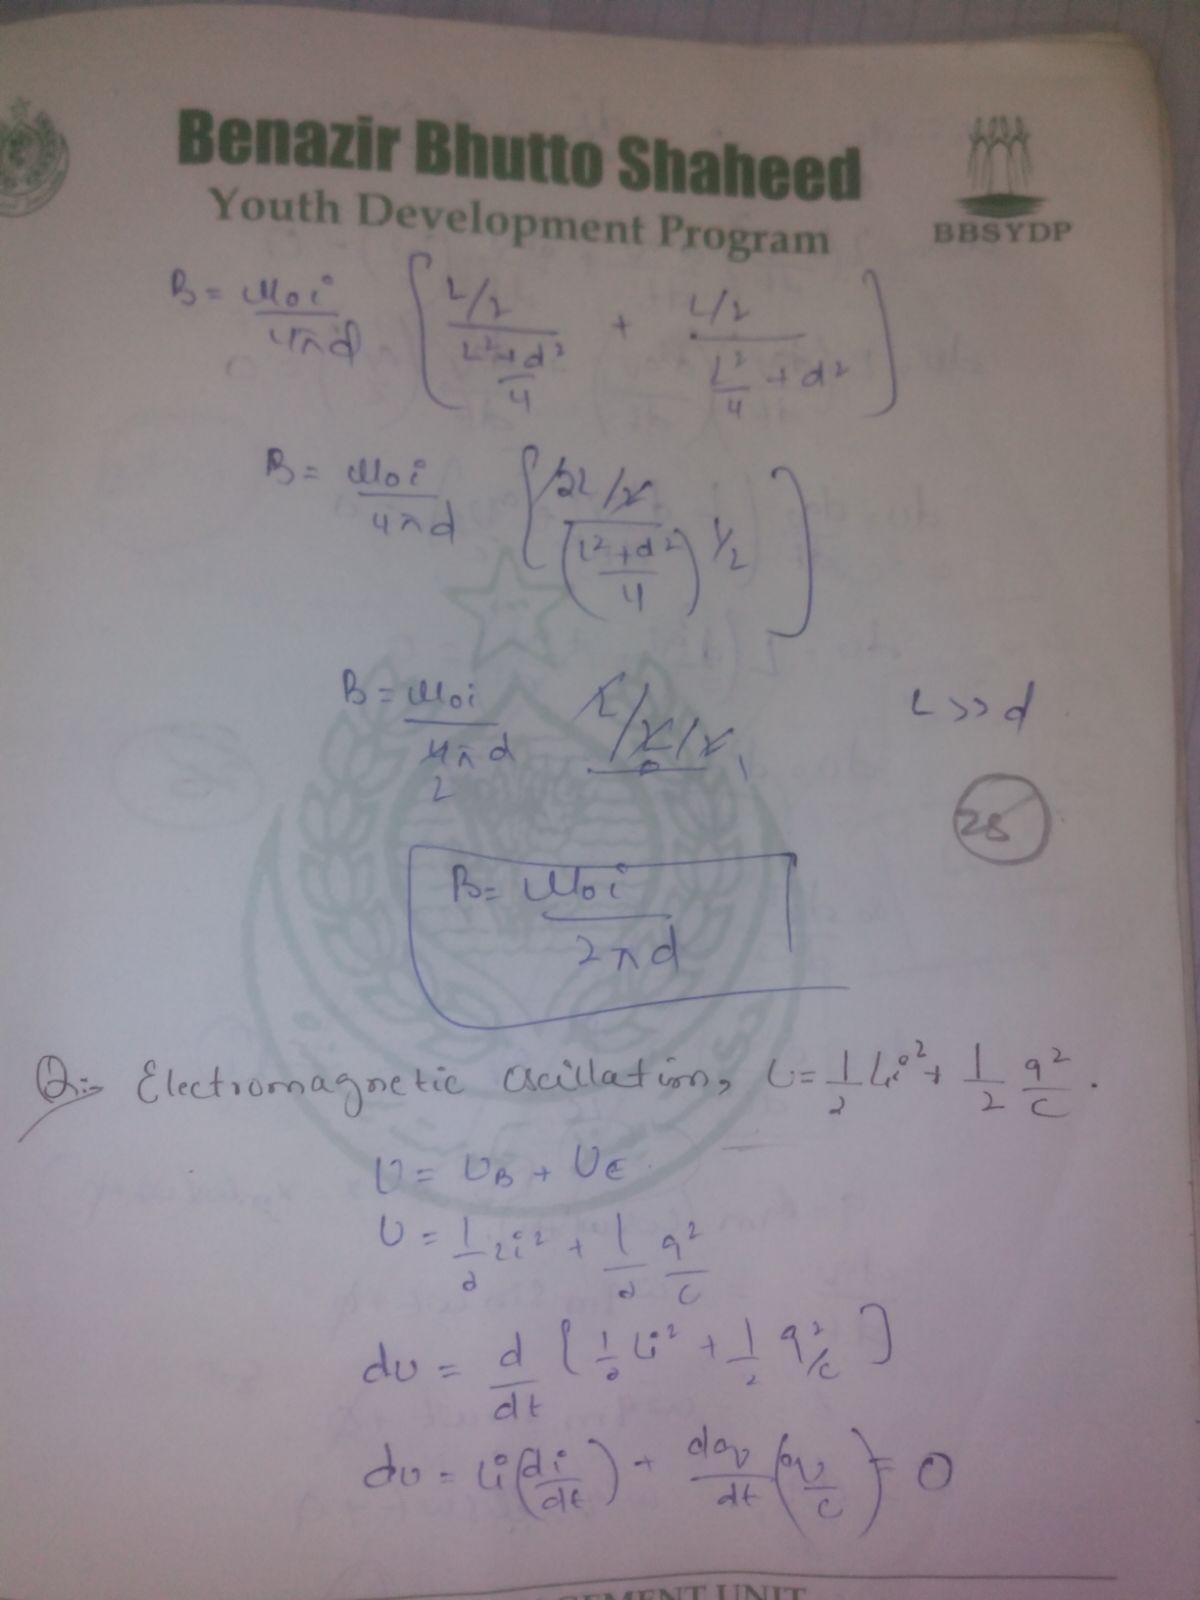 Benazir Bhutto Shaheed
Youth Development Program
BBSYDP
B = μ₀i/4πd [ L/2 / L²+d²/4 + L/2 / L²/4 + d² ]
B = μ₀i/4πd [ 2L/2 / (L²+d²/4)^1/2 ]
B = μ₀i/4πd L/L/2/2 L >> d
2
25
B = μ₀i/2πd
Q:- Electromagnetic Oscillation, U = 1/2 Li² + 1/2 q²/C.
U = U_B + U_E
U = 1/2 Li² + 1/2 q²/C
dU = d/dt [ 1/2 Li² + 1/2 q²/C ]
dU = Li(di/dt) + dq/dt (q/C) = 0